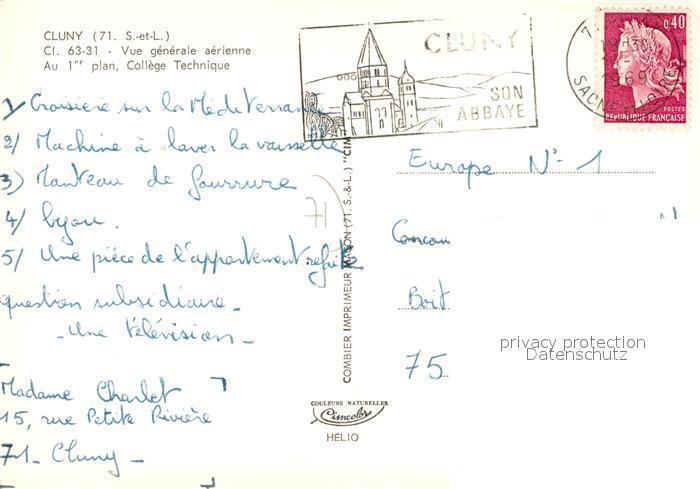 CLUNY (71. S.-et-L.)
Cl. 63-31 - Vue générale aérienne
Au 1er plan, Collège Technique
CLUNY
SON
ABBAYE
0,40
1969
SAONE
POSTES
REPUBLIQUE FRANÇAISE
1/ Croisière sur la Méditerranée
2/ Machine à laver la vaisselle
3) Manteau de fourrure
4/ bijou.
5/ Une pièce de l'appartement refaite
question subsidiaire -
- Une télévision -
Madame Charlet
15, rue Petite Rivière
71 - Cluny -
71
COMBIER IMPRIMEUR MACON (71. S.-&-L.) "CIM"
COULEURS NATURELLES
Cimcolor
HÉLIO
Europe N° 1
Concou
Boit
75
privacy protection
Datenschutz